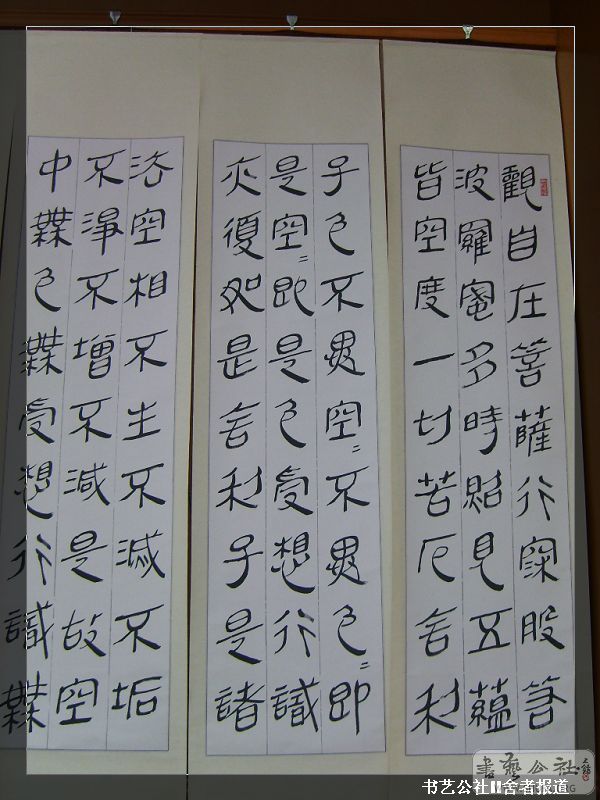 觀自在菩薩行深般若
波羅蜜多時照見五蘊
皆空度一切苦厄舍利
子色不異空〻不異色〻即
是空〻即是色受想行識
亦復如是舍利子是諸
法空相不生不滅不垢
不淨不增不減是故空
中無色無受想行識無
書藝公社
书艺公社II舍者报道